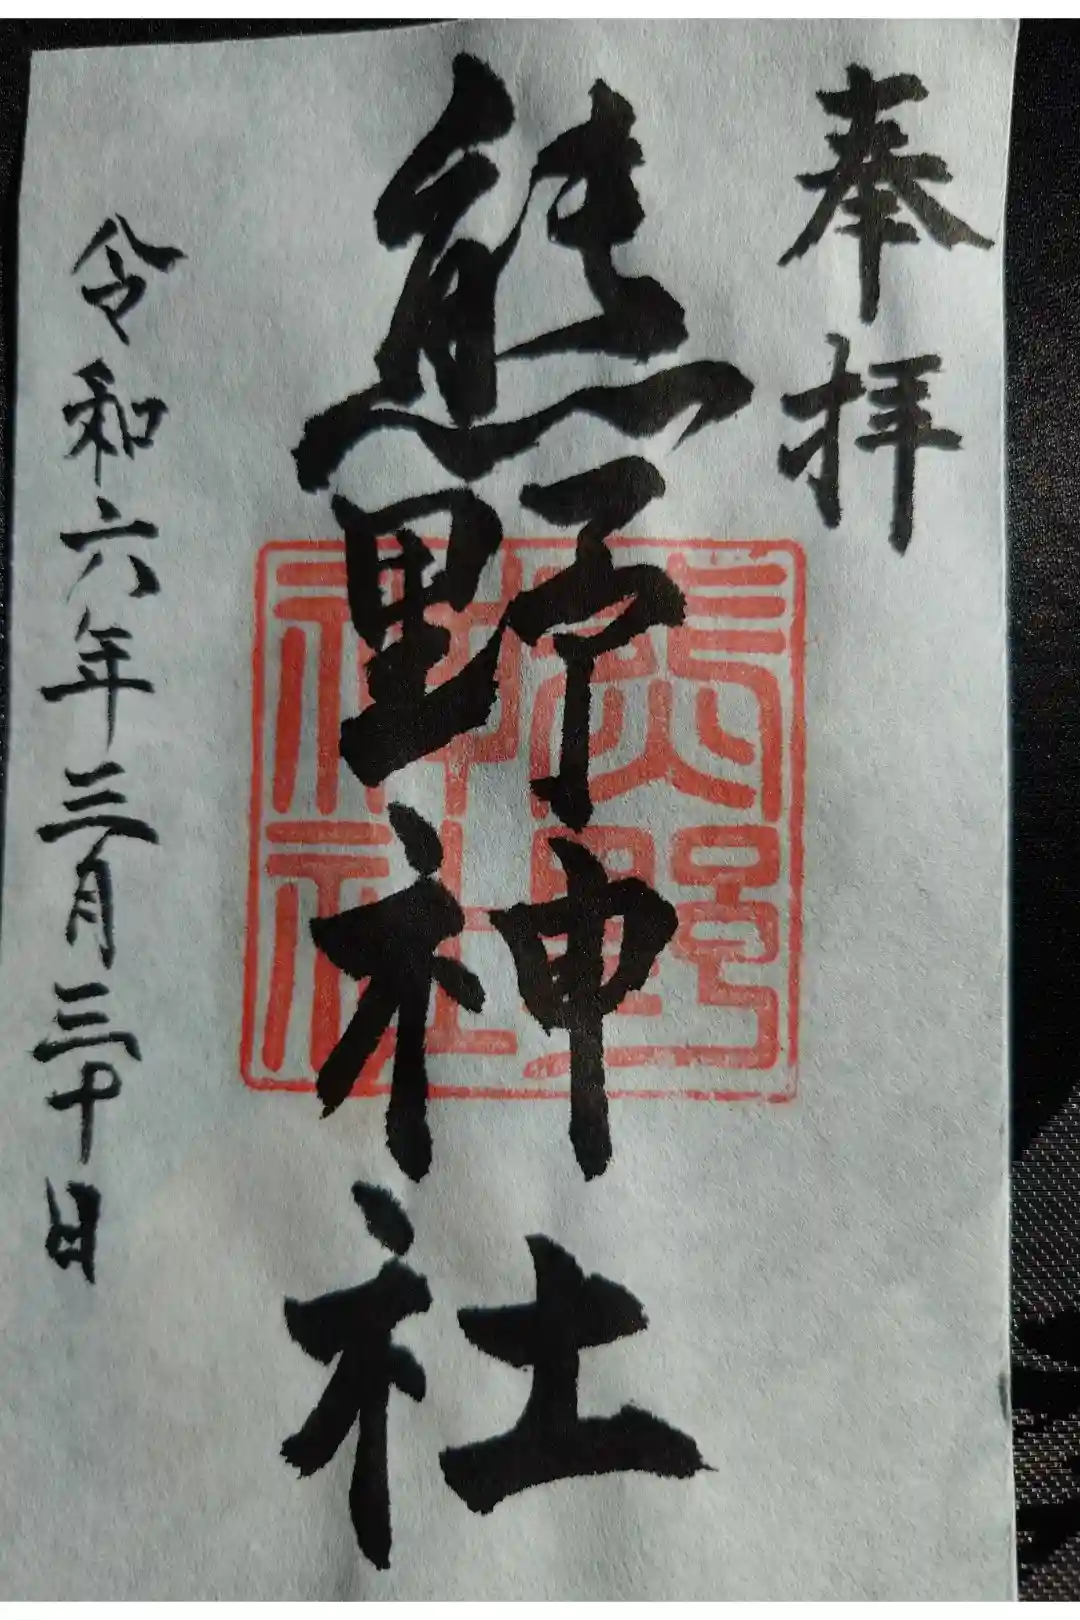 奉拝
熊野神社
熊野神社
令和六年三月三十日